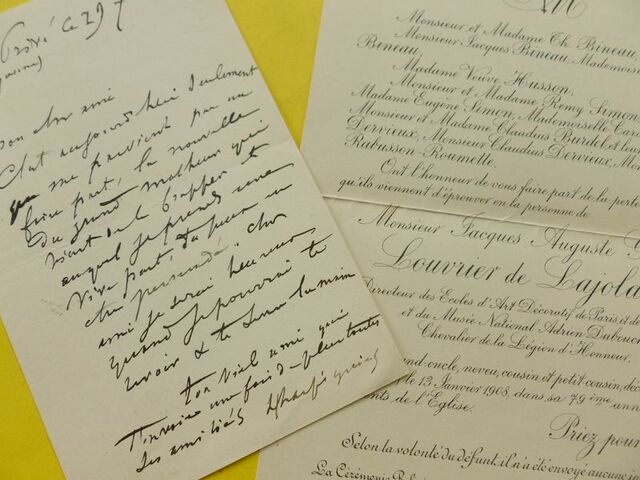 mon cher ami
C'est aujourd'hui seulement
que me parvient par un
faire part, la nouvelle
du grand malheur qui
vient de te frapper et
auquel je prends une
vive part, tu peux en
être persuadé. cher
ami je serai heureux
quand je pourrai te
revoir & te serrer la main
ton vieil ami qui
t'envoie une fois de plus toutes
ses amitiés
Monsieur et Madame Th. Bineau,
Monsieur Jacques Bineau, Mademoise
Bineau,
Madame Veuve Husson,
Monsieur et Madame Remy Simon,
Madame Eugène Simon, Mademoiselle Car
Monsieur et Madame Claudius Burdel et leur
Dervieux, Monsieur Claudius Dervieux, Mon
Rabusson-Roumette,
Ont l'honneur de vous faire part de la perte
qu'ils viennent d'éprouver en la personne de
Monsieur Jacques Auguste
Louvrier de Lajola
Directeur des Ecoles d'Art Décoratif de Paris et de
et du Musée National Adrien Dubouch
Chevalier de la Légion d'Honneur,
nd-oncle, neveu, cousin et petit cousin, décé
le 13 Janvier 1908, dans sa 79ème anné
nts de l'Eglise.
Priez pour
Selon la volonté du défunt, il n'a été envoyé aucune in
La Cérémonie